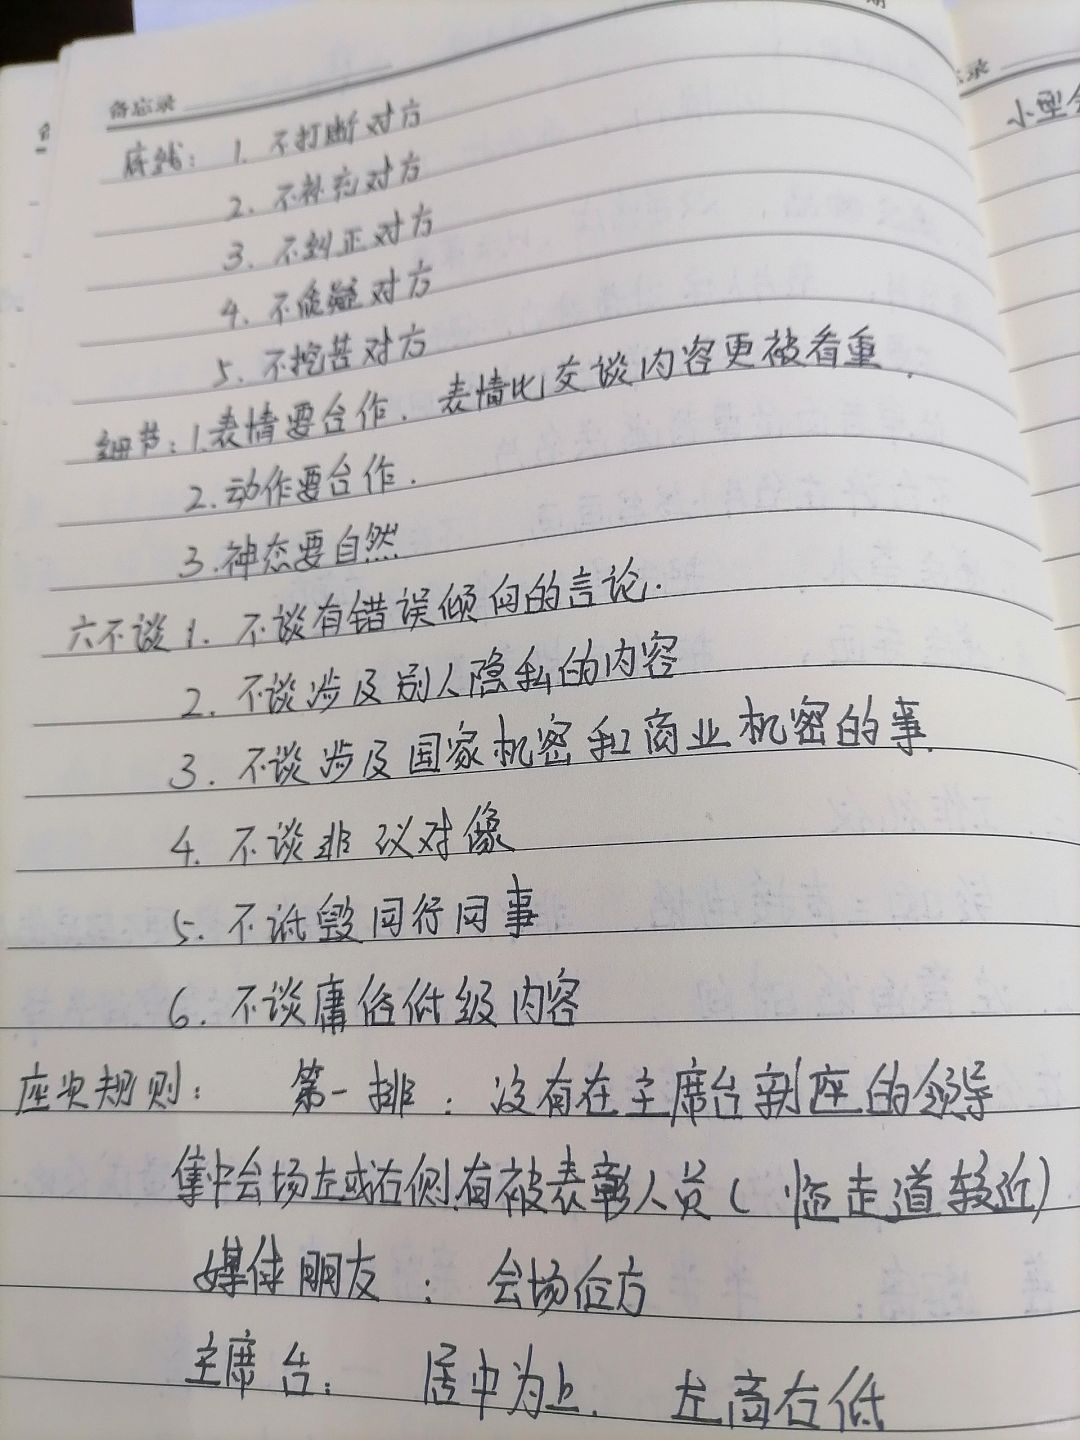 备忘录
底线：1. 不打断对方
2. 不补充对方
3. 不纠正对方
4. 不质疑对方
5. 不挖苦对方
细节：1.表情要合作．表情比交谈内容更被看重．
2.动作要合作．
3.神态要自然
六不谈 1. 不谈有错误倾向的言论．
2. 不谈涉及别人隐私的内容
3. 不谈涉及国家机密和商业机密的事．
4. 不谈非议对像
5. 不诋毁同行同事
6. 不谈庸俗低级内容
座次规则： 第一排：没有在主席台就座的领导
集中会场左或右侧，有被表彰人员（临走道较近）
媒体朋友：会场后方
主席台： 居中为上． 左高右低
小型会